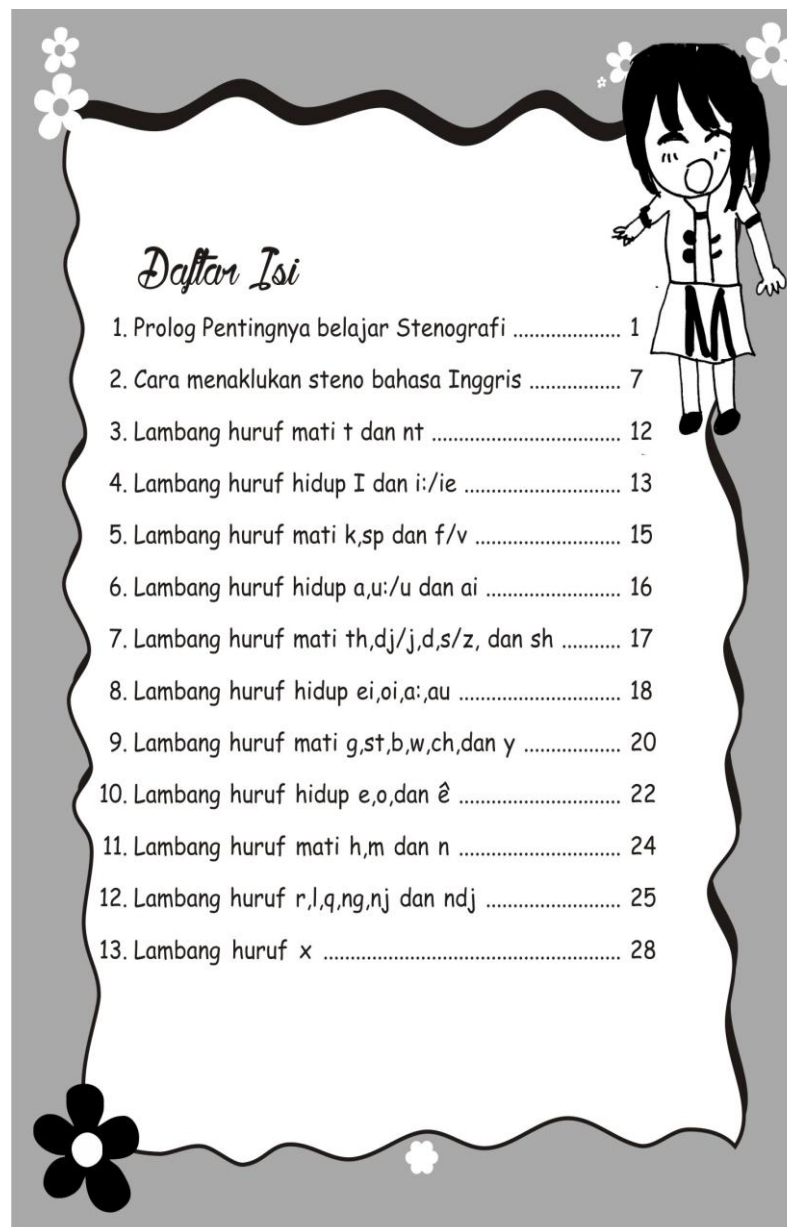 Daftar Isi
1. Prolog Pentingnya belajar Stenografi .................... 1
2. Cara menaklukan steno bahasa Inggris ................. 7
3. Lambang huruf mati t dan nt ................................... 12
4. Lambang huruf hidup I dan i:/ie ............................. 13
5. Lambang huruf mati k,sp dan f/v ........................... 15
6. Lambang huruf hidup a,u:/u dan ai ......................... 16
7. Lambang huruf mati th,dj/j,d,s/z, dan sh ........... 17
8. Lambang huruf hidup ei,oi,a:,au .............................. 18
9. Lambang huruf mati g,st,b,w,ch,dan y .................. 20
10. Lambang huruf hidup e,o,dan ê .............................. 22
11. Lambang huruf mati h,m dan n .............................. 24
12. Lambang huruf r,l,q,ng,nj dan ndj ......................... 25
13. Lambang huruf x ........................................................ 28